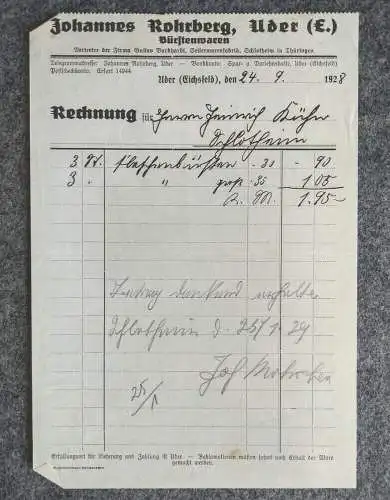 Johannes Rohrberg, Uder (E.)
Bürstenwaren
Vertreter der Firma Gustav Burkhardt, Seilerwarenfabrik, Schlotheim in Thüringen
Telegrammadresse: Johannes Rohrberg, Uder — Bankkonto: Spar- u. Darlehnskasse, Uder (Eichsfeld)
Postscheckkonto: Erfurt 14944
Uder (Eichsfeld), den 24. 9. 1928
Rechnung für Herrn Heinrich Kühn
Schlotheim
3 St. Flaschenbürsten - 30 - 90
3 " " - 35 1.05
R. M. 1.95
Betrag dankend erhalten
Schlotheim d. 25/1. 29
Joh Rohrberg
25/1
Erfüllungsort für Lieferung und Zahlung ist Uder. — Reklamationen müssen sofort nach Erhalt der Ware
gemacht werden.